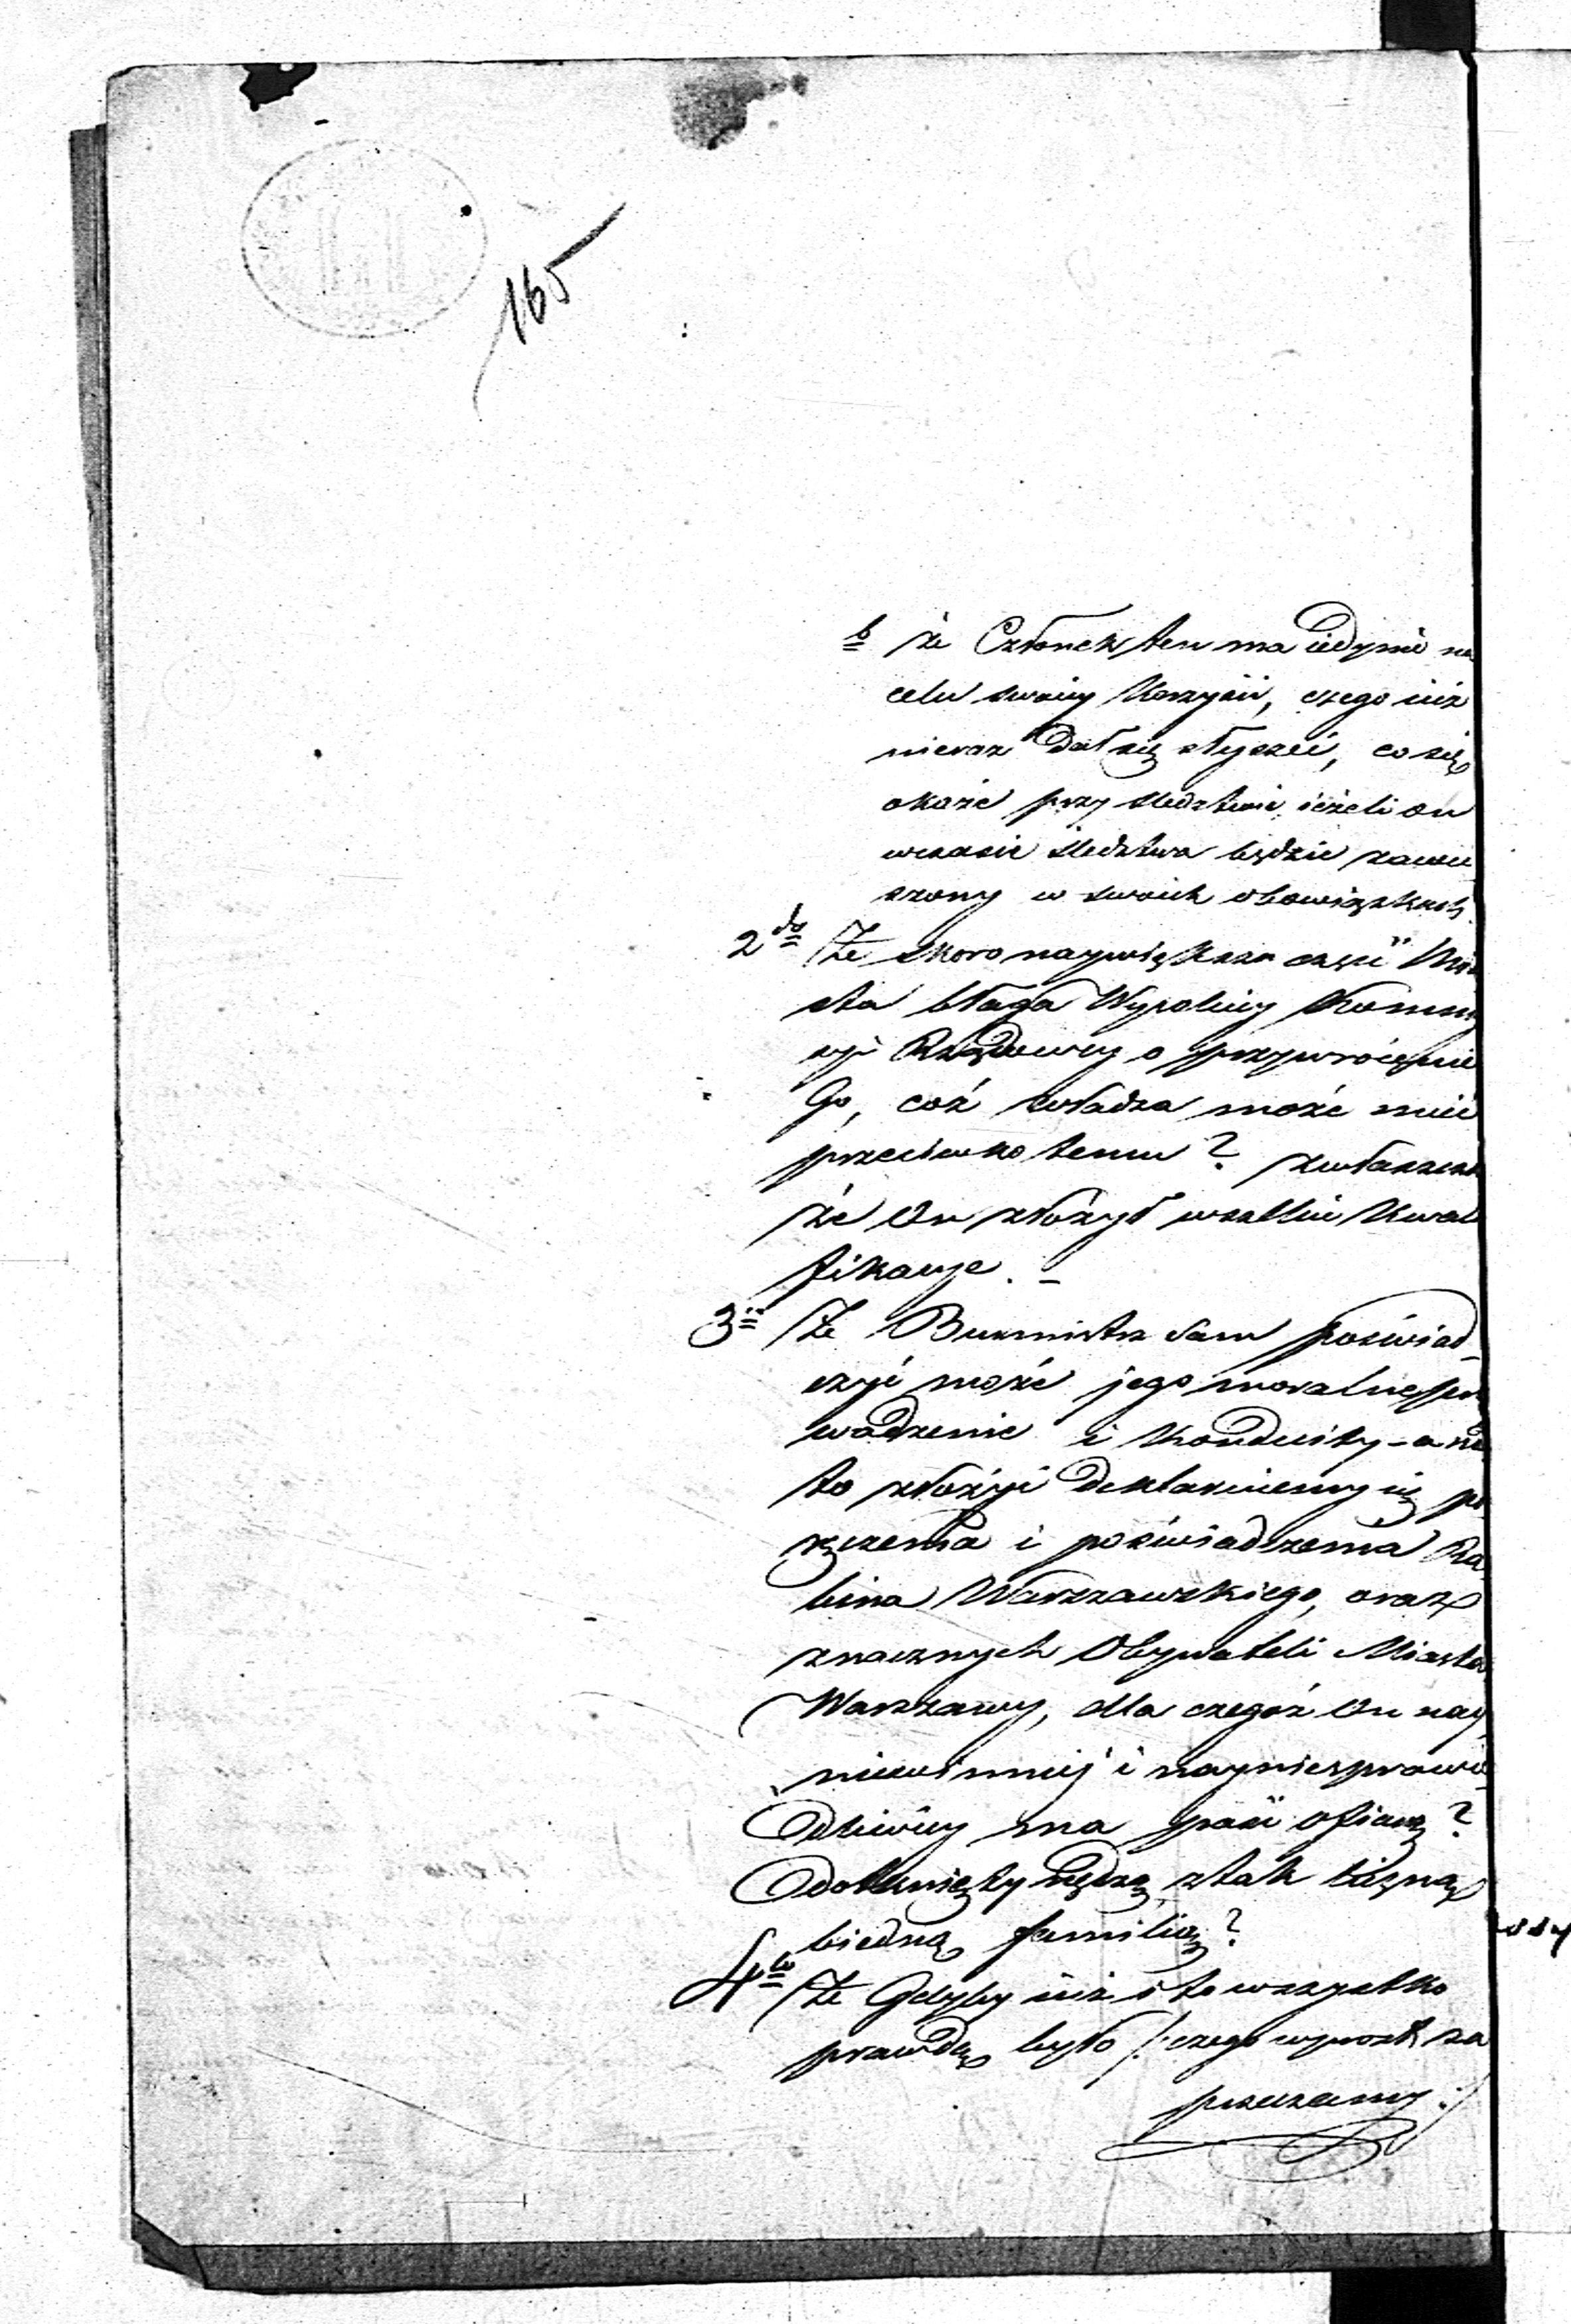 165
b że Człowiek ten ma iedynie na
celu swoiey Korzyści, czego iuż
nieraz Dał się słyszeć, co się
okaże przy śledztwie, ieżeli on
wczasie śledztwa będzie zawie
szony w swoich obowiązkach.
2do Że skoro naywiększa część Mia
sta błaga Wysokiey Kommis
syi Rządowey o przywrócenie
Go, coż władza może mieć
przeciwko temu? zwłaszcza
że On złożył wszelkie Kwali
fikacye. –
3ii Że Burmistrz Sam poświad
czyć może jego moralne pro
wadzenie i Konduity – a na
to złożyć Deklaruiemy się po
ręczenia i poświadczenia Ra
bina Warszawskiego, oraz
znacznych Obywateli Miasta
Warszawy, dla czegoż On nay
niewinniej i nayniesprawie
dliwiey ma paść ofiarą?
dotknięty nędzą, z tak liczną
biedną familią?
4to Że Gdyby iuż i to wszystko
prawdą było /: czego wprost za
przeczamy :/